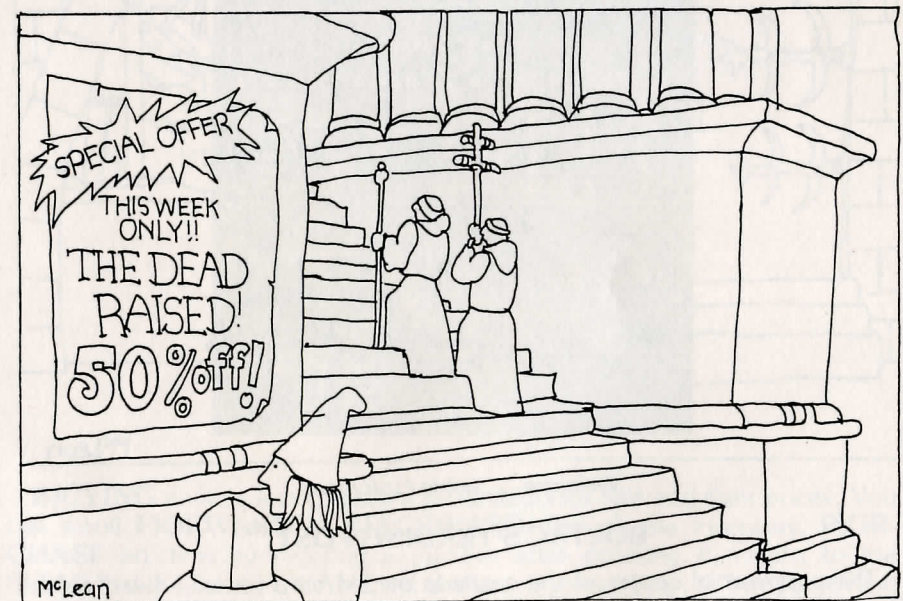 SPECIAL OFFER
THIS WEEK
ONLY!!
THE DEAD
RAISED
50% off!
McLean